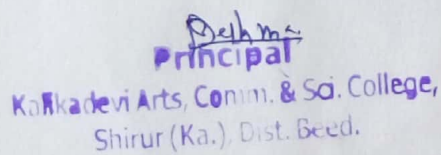 Principal
Kalikadevi Arts, Comm. & Sci. College,
Shirur (Ka.). Dist. Beed.